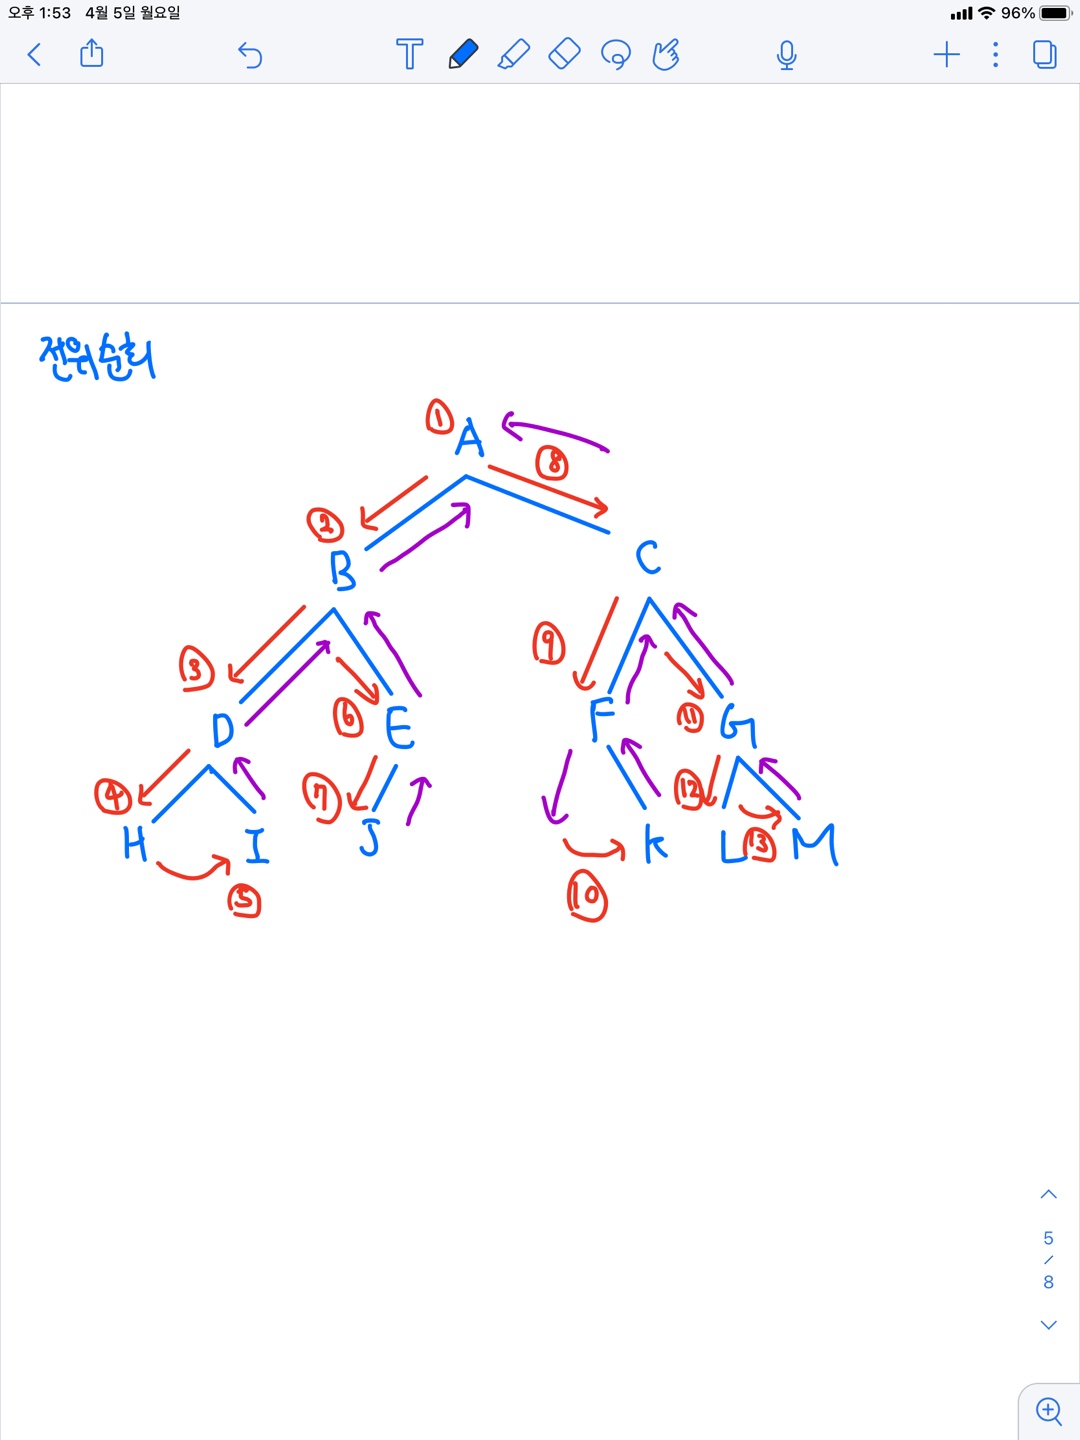 오후 1:53 4월 5일 월요일 96%
T
전위순회
① A
⑧
② B
C
③ ⑨
D ⑥ E F ⑪ G
④ ⑦ ⑫
H I J K L ⑬ M
⑤ ⑩
5
/
8